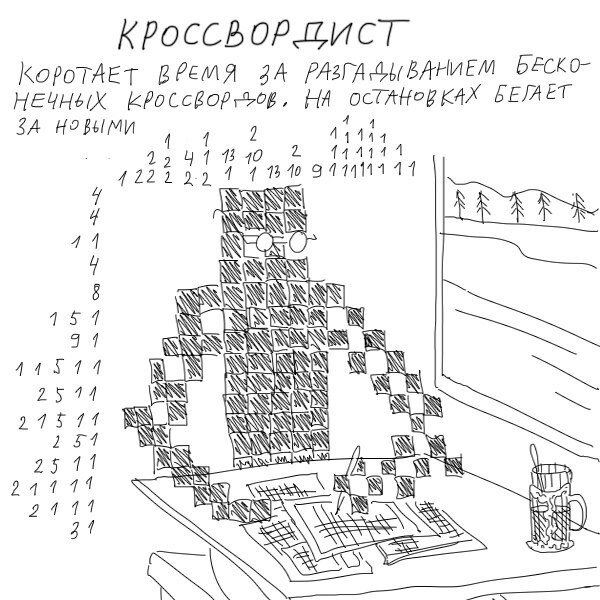 КРОССВОРДИСТ
КОРОТАЕТ ВРЕМЯ ЗА РАЗГАДЫВАНИЕМ БЕСКО-
НЕЧНЫХ КРОССВОРДОВ. НА ОСТАНОВКАХ БЕГАЕТ
ЗА НОВЫМИ
1 1
1 1 2 1 1 1 1
2 2 4 1 13 10 2 1 1 1 1 1
1 2 2 2 2 2 1 1 13 10 9 1 1 1 1 1 1 1
4
4
1 1
4
8
1 5 1
9 1
1 1 5 1 1
2 5 1 1
2 1 5 1 1
2 5 1
2 5 1 1
2 1 1 1 1
2 1 1 1
3 1